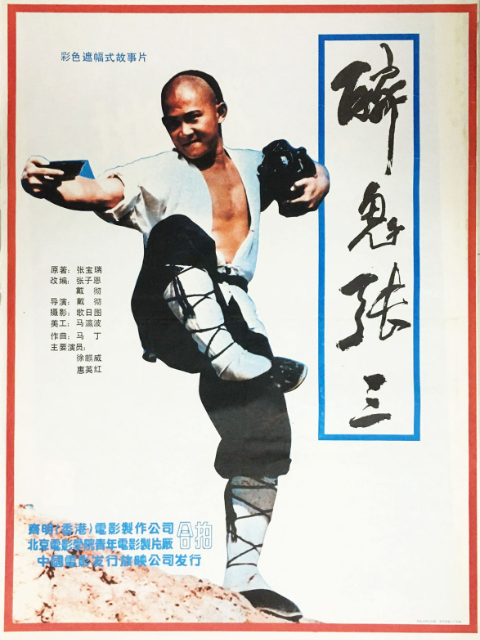 彩色遮幅式故事片
醉鬼张三
原著：张宝瑞
改编：张子恩
戴彻
导演：戴彻
摄影：敖日图
美工：马瀛波
作曲：马丁
主要演员：
徐颐威
惠英红
（香港）電影製作公司
北京電影學院青年電影製片廠
合拍
中國電影发行放映公司发行